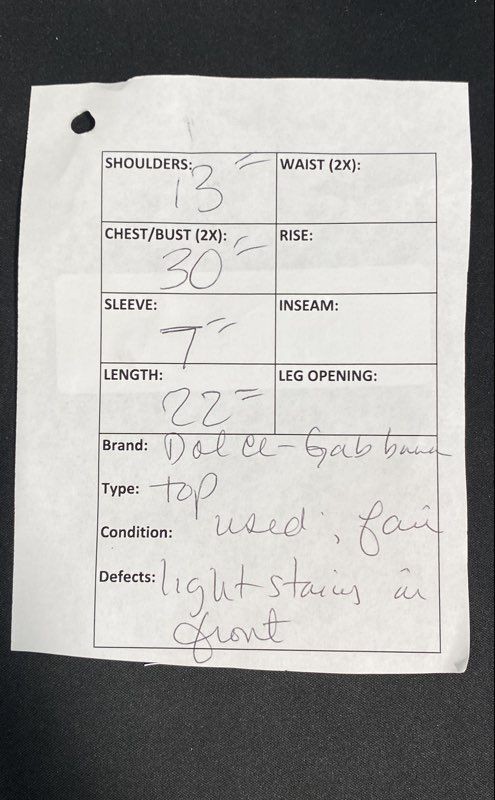 SHOULDERS: 13" WAIST (2X):
CHEST/BUST (2X): 30" RISE:
SLEEVE: 7" INSEAM:
LENGTH: 22" LEG OPENING:
Brand: Dolce-Gabbana
Type: top
Condition: used, fair
Defects: light stains in
front